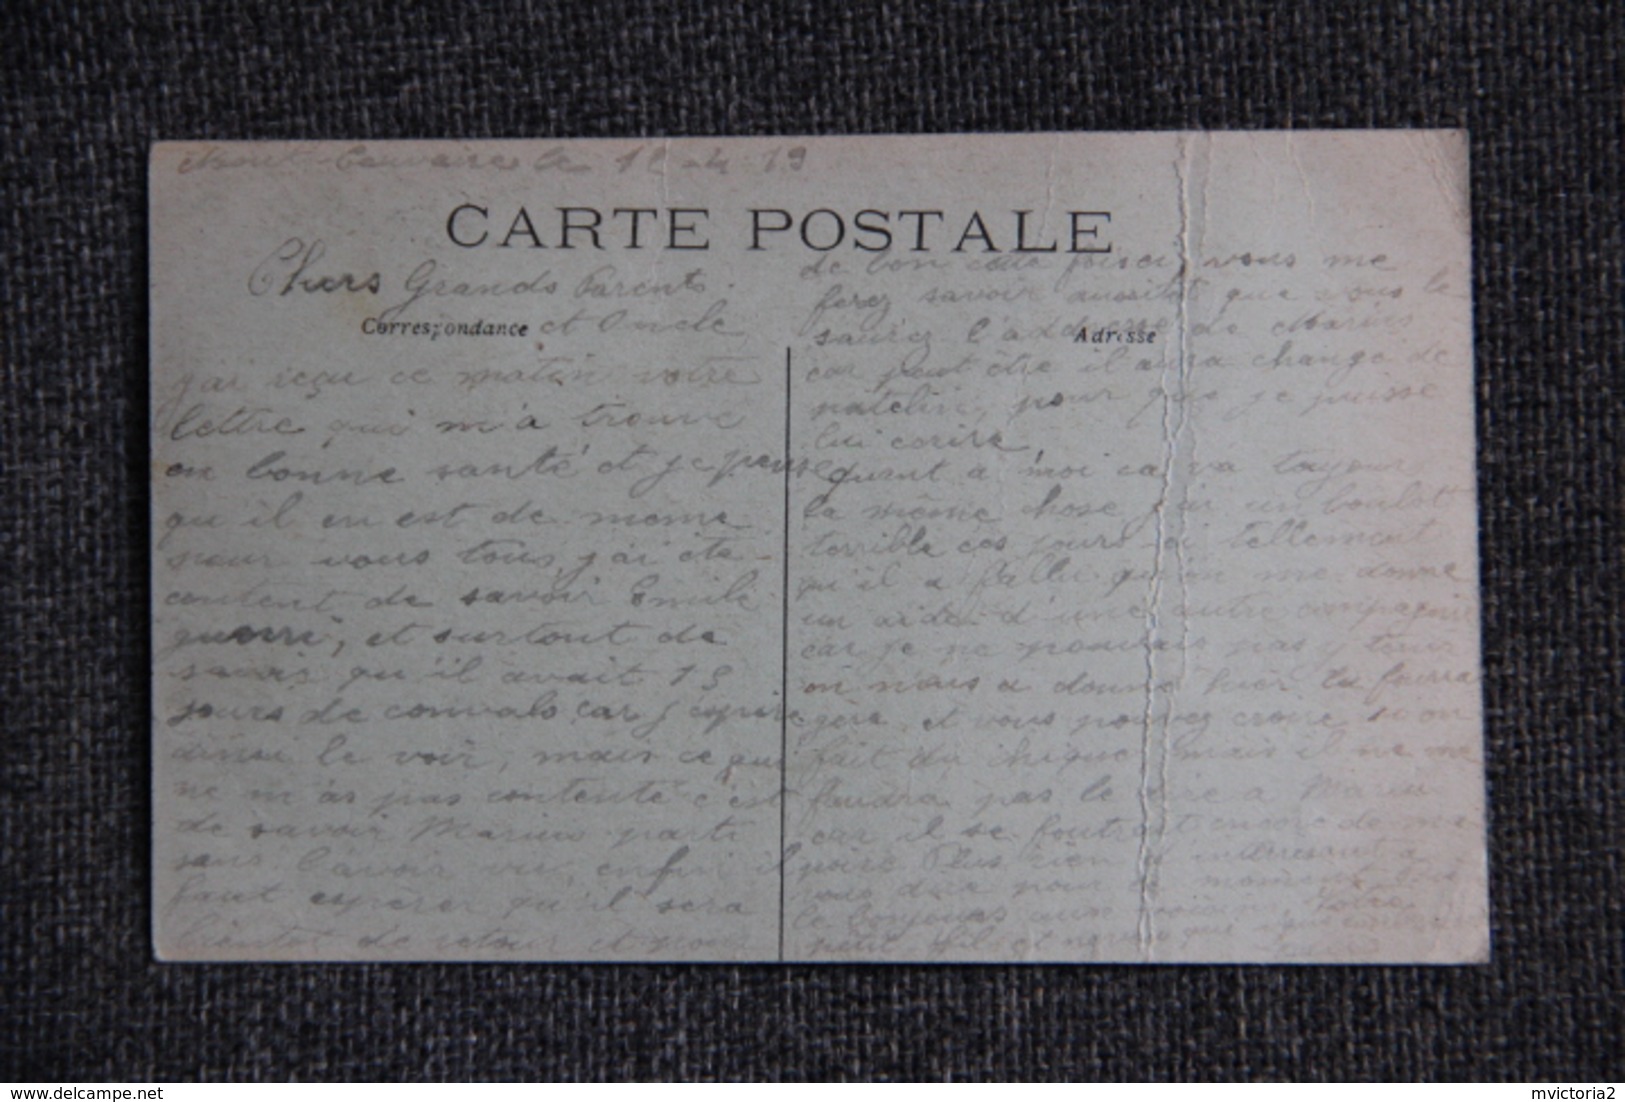 le 12-4-19
CARTE POSTALE
Chers Grands Parents
Correspondance et Oncle
j'ai reçu ce matin votre
lettre qui m'a trouvé
en bonne santé et je pense
qu'il en est de meme
pour vous tous, j'ai été
content de savoir Emile
guerri, et surtout de
savoir qu'il avait 15
jours de convalo car j'espire
ainsi le voir, mais ce qui
ne m'as pas contenté c'est
de savoir Marius parti
sans l'avoir vu, enfin il
faut esperer qu'il sera
bientot de retour et pour
de bon cette foisci, vous me
ferez savoir aussitot que vous le
saurez l'addresse de Marius
Adresse
car peut être il aura changé de
patelin, pour que je puisse
lui ecrire
quant a moi ca va toujours
la même chose j'ai un boulot
terrible ces jours ci tellement
qu'il a fallu qu'on me donne
un aide d'une autre compagnie
car je ne pouvais pas y tenir
on nous a donné hier la fourra
gère, et vous pouvez croire si on
fait du chique mais il ne me
faudra pas le dire a Marius
car il se foutrait encore de ma
poire Plus rien d'intéressant a
vous dire pour le moment
le bonjour aux voisins Votre
petit fils et neveu que vous